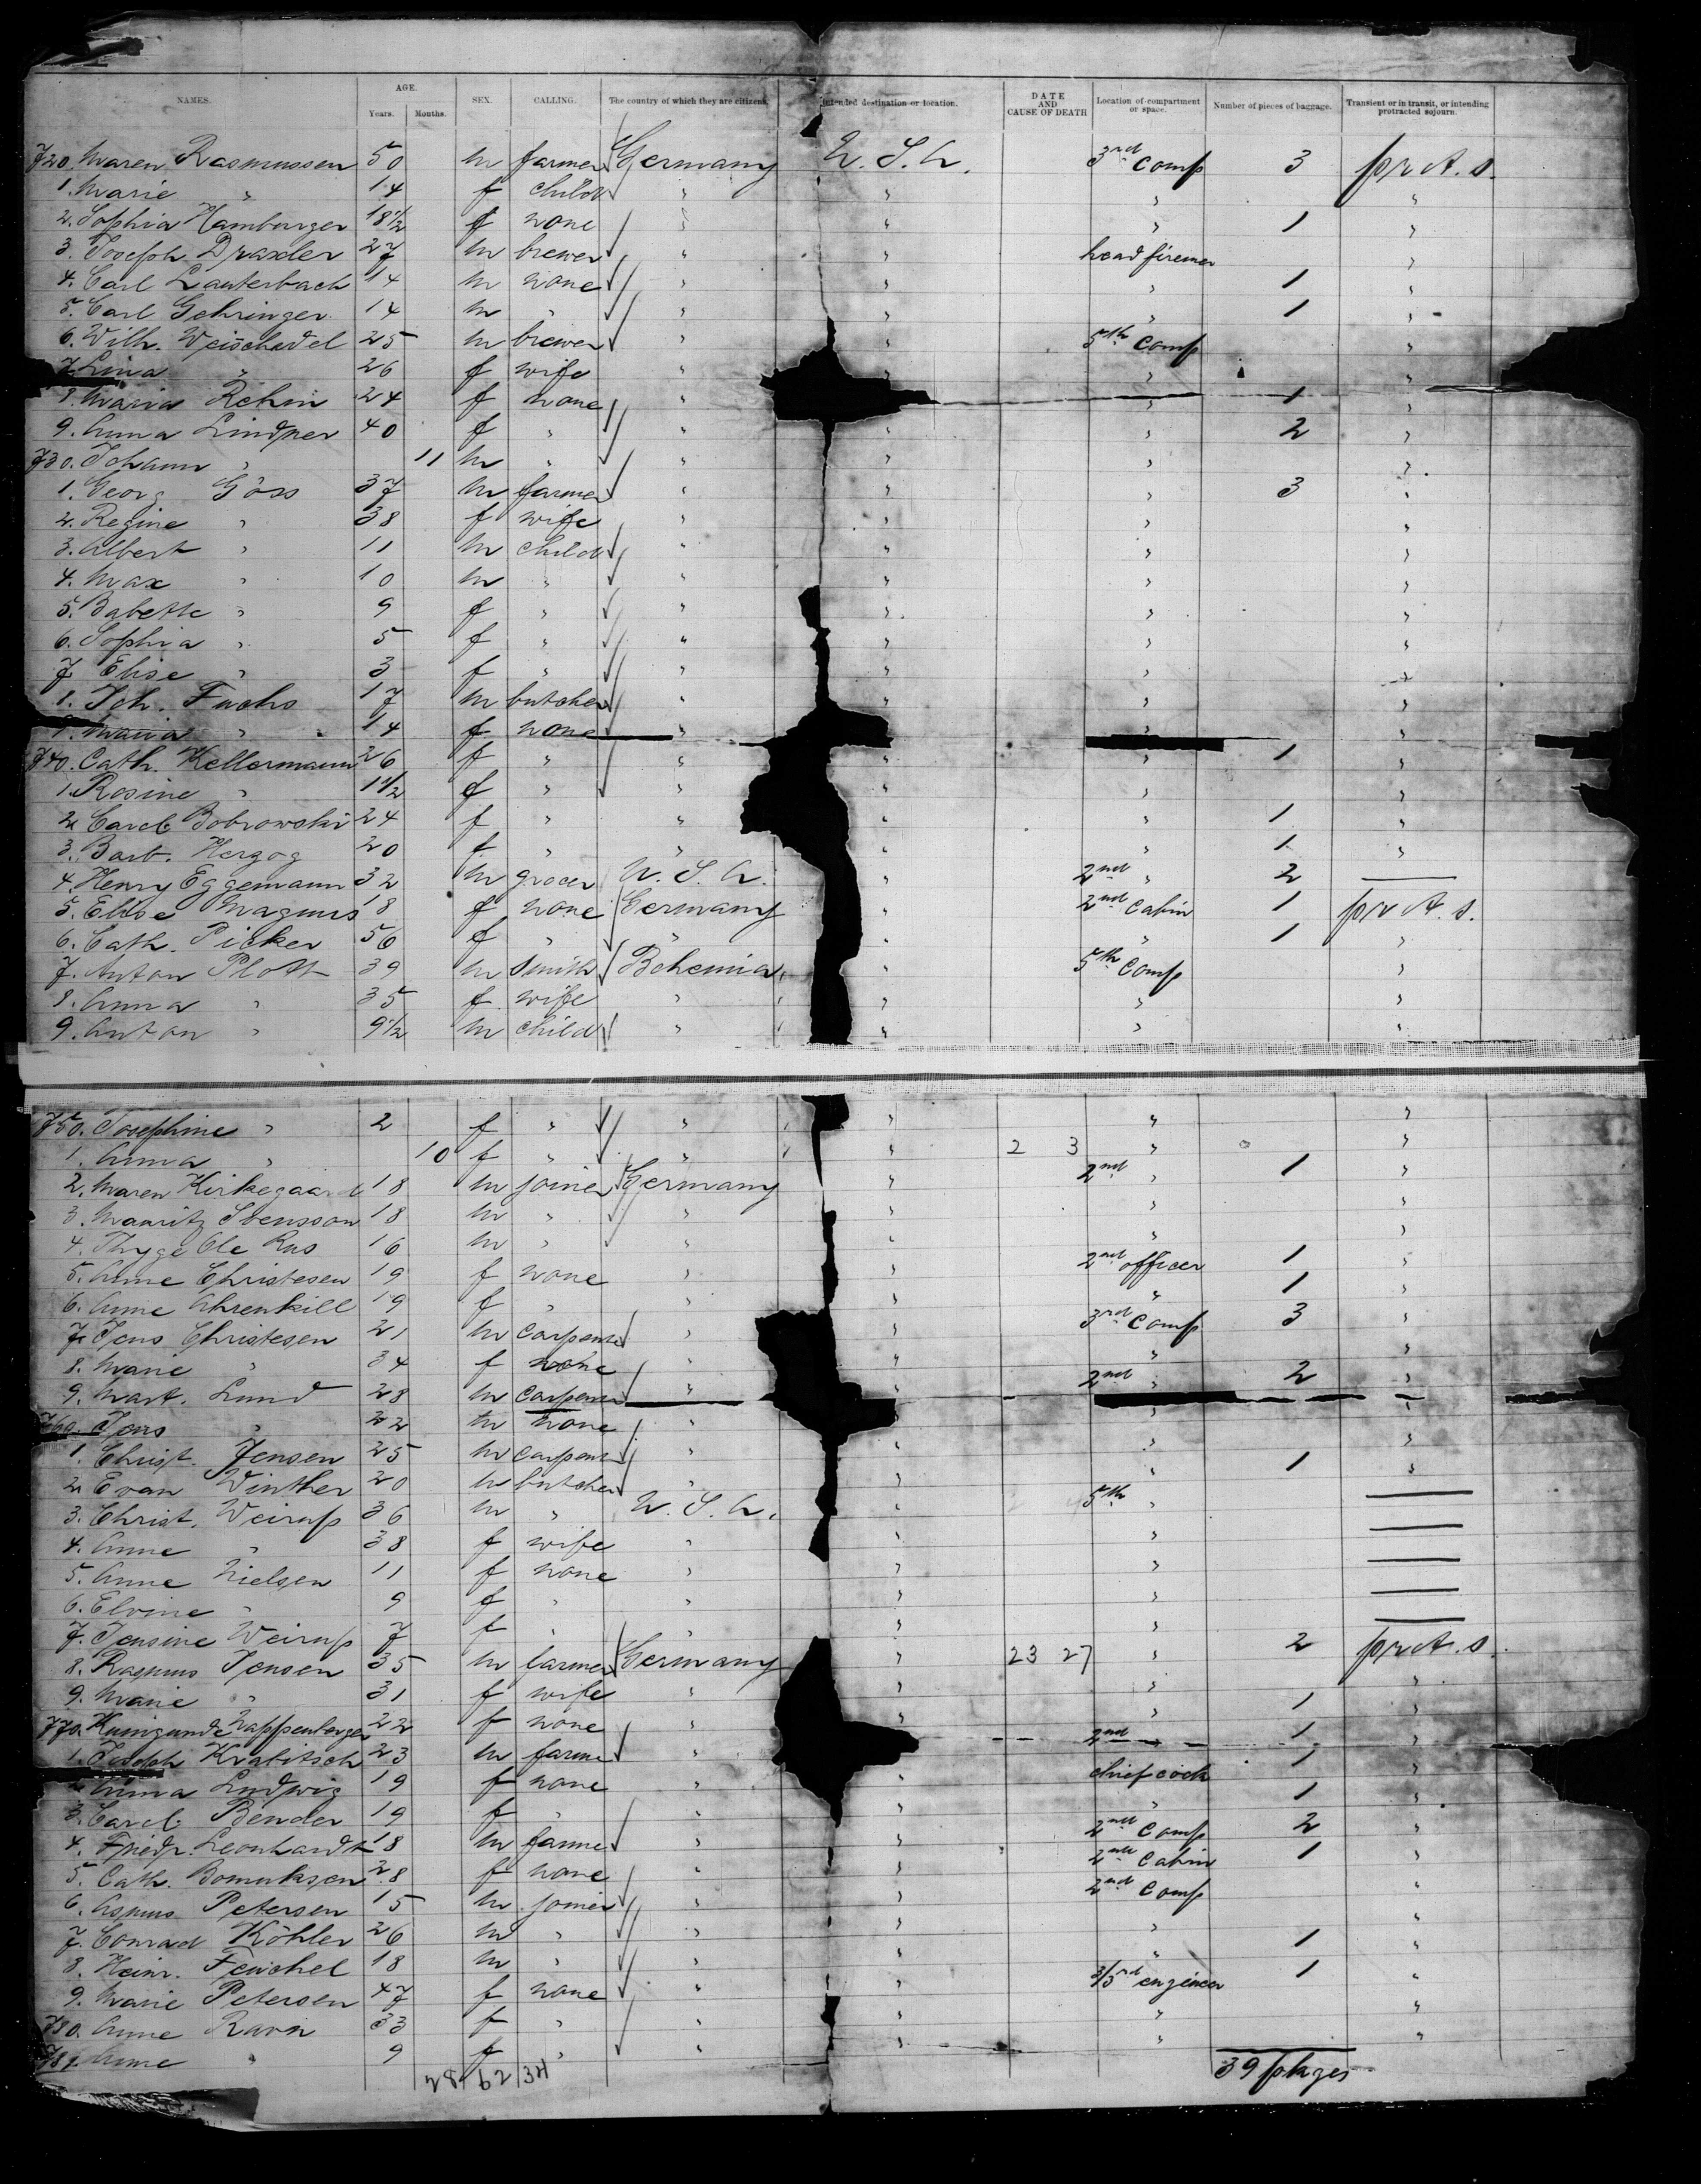 NAMES. AGE. Years. Months. SEX. CALLING. The country of which they are citizens. Intended destination or location. DATE AND CAUSE OF DEATH Location of compartment or space. Number of pieces of baggage. Transient or in transit, or intending protracted sojourn.
720. Maren Rasmussen 50 m farmer Germany U. S. A. 3rd Comp 3 prot. s.
1. Marie " 14 f child " " " "
2. Sophia Hamburger 18 1/2 f none " " " 1 "
3. Joseph Draxler 27 m brewer " " head firemen "
4. Carl Lauterbach 14 m none " " " 1 "
5. Carl Gehringer 14 m " " " " 1 "
6. Wilh. Weischedel 25 m brewer " " 5th Comp "
7. Lina " 26 f wife " " " "
8. Maria Rehm 24 f none " " 1 "
9. Anna Lindner 40 f " " " " 2 "
730. Johann " 11 m " " " " "
1. Georg Göss 37 m farmer " " " 3 "
2. Regine " 38 f wife " " " "
3. Albert " 11 m child " " " "
4. Max " 10 m " " " " "
5. Babette " 9 f " " " " "
6. Sophia " 5 f " " " " "
7. Elise " 3 f " " " " "
8. Joh. Fuchs 17 m butcher " " " "
9. Maria " 14 f none " " "
740. Cath. Kellermann 26 f " " " 1 "
1. Rosine " 1 1/2 f " " " "
2. Carol. Bobrowski 24 f " " " " 1 "
3. Barb. Herzog 20 f " " " " 1 "
4. Henry Eggemann 32 m grocer U. S. A. " 2nd " 2 —
5. Elise Magnus 18 f none Germany " 2nd Cabin 1 prot. s.
6. Cath. Picker 56 f " " " " 1 "
7. Anton Plott 39 m Smith Bohemia " 5th Comp "
8. Anna " 35 f wife " " " "
9. Anton " 9 1/2 m child " " " "
750. Josephine " 2 f " " " " "
1. Anna " 10 f " " " 2 3 " "
2. Maren Kirkegaard 18 m joiner Germany " 2nd " 1 "
3. Mauritz Svensson 18 m " " " " "
4. Thyge Ole Rus 16 m " " " " "
5. Anne Christesen 19 f none " " 2nd officer 1 "
6. Anne Ahrenkill 19 f " " " " 1 "
7. Jens Christesen 21 m Carpenter " " 3rd Comp 3 "
8. Marie " 34 f none " " " "
9. Mart. Lund 28 m Carpenter " 2nd " 2 "
760. Jens " 22 m none " " "
1. Christ. Jensen 25 m Carpenter " " " "
2. Evan Winther 20 m butcher " " " 1 "
3. Christ. Weirup 36 m " U. S. A. " 5th " —
4. Anne " 38 f wife " " " —
5. Anne Nielsen 11 f none " " " —
6. Elvine " 9 f " " " " —
7. Jensine Weirup 7 f " " " " —
8. Rasmus Jensen 35 m farmer Germany " 23 27 " 2 prot. s.
9. Marie " 31 f wife " " " "
770. Kunigunde Nappenberger 22 f none " " 1 "
1. Joseph Krabitsch 23 m farmer " 2nd 1 "
2. Anna Ludwig 19 f none " " chief cook 1 "
3. Carol. Bender 19 f " " " " 1 "
4. Friedr. Leonhardt 18 m farmer " " 2nd Comp 2 "
5. Cath. Bomuksen 28 f none " " 2nd Cabin 1 "
6. Asmus Petersen 15 m joiner " " 2nd Comp "
7. Conrad Köhler 26 m " " " " "
8. Heinr. Feuchel 18 m " " " " 1 "
9. Marie Petersen 47 f none " " 2/3rd engineer 1 "
780. Anne Ravn 33 f " " " " "
781. Anne " 9 f " " " " "
28 62 34
39 pkges